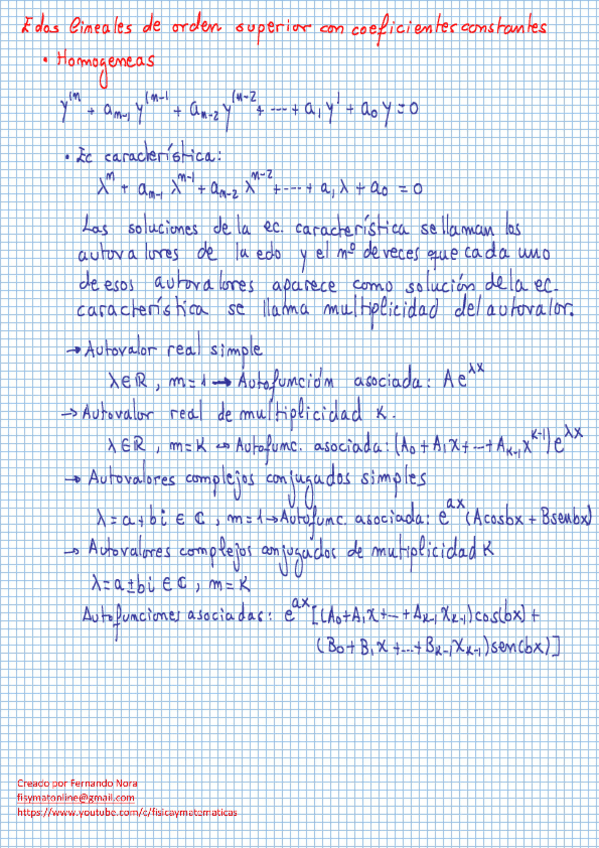 Edos lineales de orden superior con coeficientes constantes
• Homogeneas
y⁽ⁿ + aₙ₋₁ y⁽ⁿ⁻¹ + aₙ₋₂ y⁽ⁿ⁻² + --- + a₁ y' + a₀ y = 0
• Ec característica:
λⁿ + aₙ₋₁ λⁿ⁻¹ + aₙ₋₂ λⁿ⁻² + --- + a₁ λ + a₀ = 0
Las soluciones de la ec. característica se llaman los
autovalores de la edo y el nº de veces que cada uno
de esos autovalores aparece como solución de la ec.
característica se llama multiplicidad del autovalor.
→ Autovalor real simple
λ ∈ ℝ, m = 1 → Autofunción asociada: A e^λx
→ Autovalor real de multiplicidad K.
λ ∈ ℝ, m = K → Autofunc. asociada: (A₀ + A₁x + --- + A_K-1 x^K-1) e^λx
→ Autovalores complejos conjugados simples
λ = a ± bi ∈ ℂ, m = 1 → Autofunc. asociada: e^ax (A cos bx + B sen bx)
→ Autovalores complejos conjugados de multiplicidad K
λ = a ± bi ∈ ℂ, m = K
Autofunciones asociadas: e^ax [(A₀ + A₁x + --- + A_K-1 x_K-1) cos(bx) +
(B₀ + B₁x + --- + B_K-1 x_K-1) sen(bx)]
Creado por Fernando Nora
fisymatonline@gmail.com
https://www.youtube.com/c/fisicaymatematicas